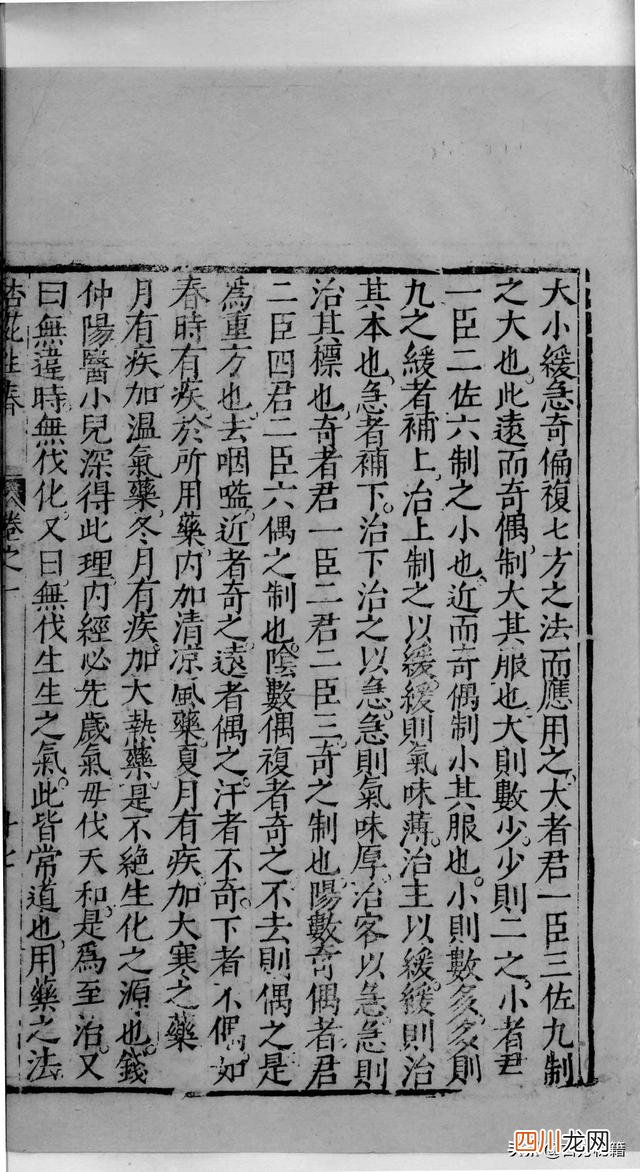 大小緩急奇偏複七方之法而應用之大者君一臣三佐九制
之大也此遠而奇偶制大其服也大則數少少則二之小者君
一臣二佐六制之小也近而奇偶制小其服也小則數多多則
九之緩者補上治上制之以緩緩則氣味薄治主以緩緩則治
其本也急者補下治下治之以急急則氣味厚治客以急急則
治其標也奇者君一臣二君二臣三奇之制也陽數奇偶者君
二臣四君二臣六偶之制也陰數偶複者奇之不去則偶之是
為重方也去咽嗌近者奇之遠者偶之汗者不奇下者不偶如
春時有疾於所用藥內加清凉風藥夏月有疾加大寒之藥
月有疾加温氣藥冬月有疾加大熱藥是不絕生化之源也錢
仲陽醫小兒深得此理內經必先歲氣毋伐天和是為至治又
曰無違時無伐化又曰無伐生生之氣此皆常道也用藥之法
杏花生春
卷之一
十七
四川龙网